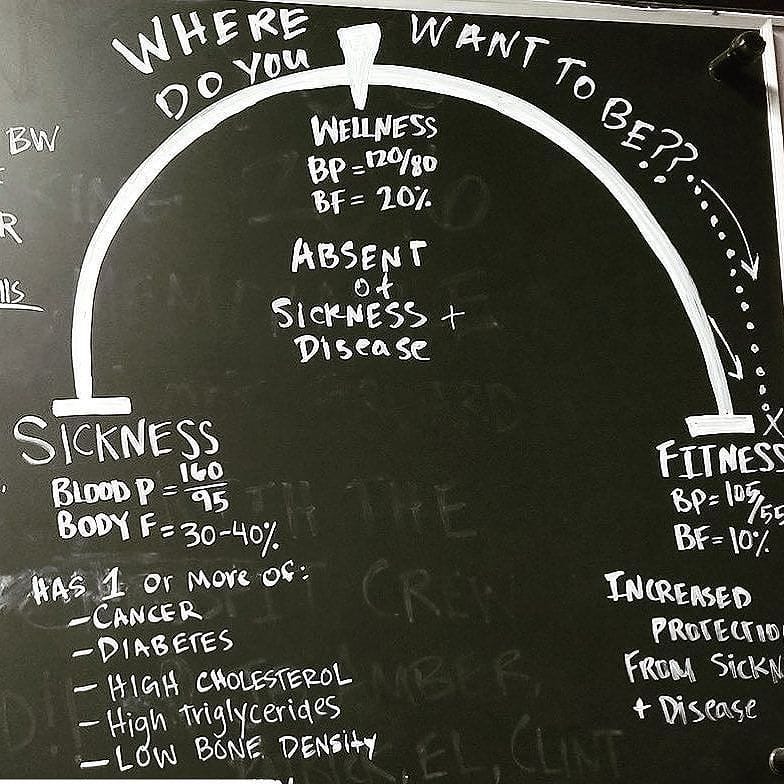 WHERE
DO YOU
WANT TO BE??
BW
R
WELLNESS
BP = 120/80
BF = 20%
ABSENT
of
SICKNESS +
Disease
SICKNESS
BLOOD P = 160/95
BODY F = 30-40%
HAS 1 or more of:
- CANCER
- DIABETES
- HIGH CHOLESTEROL
- High Triglycerides
- LOW BONE DENSITY
X
FITNESS
BP = 105/55
BF = 10%
INCREASED
PROTECTIO
FROM SICKN
+ Disease